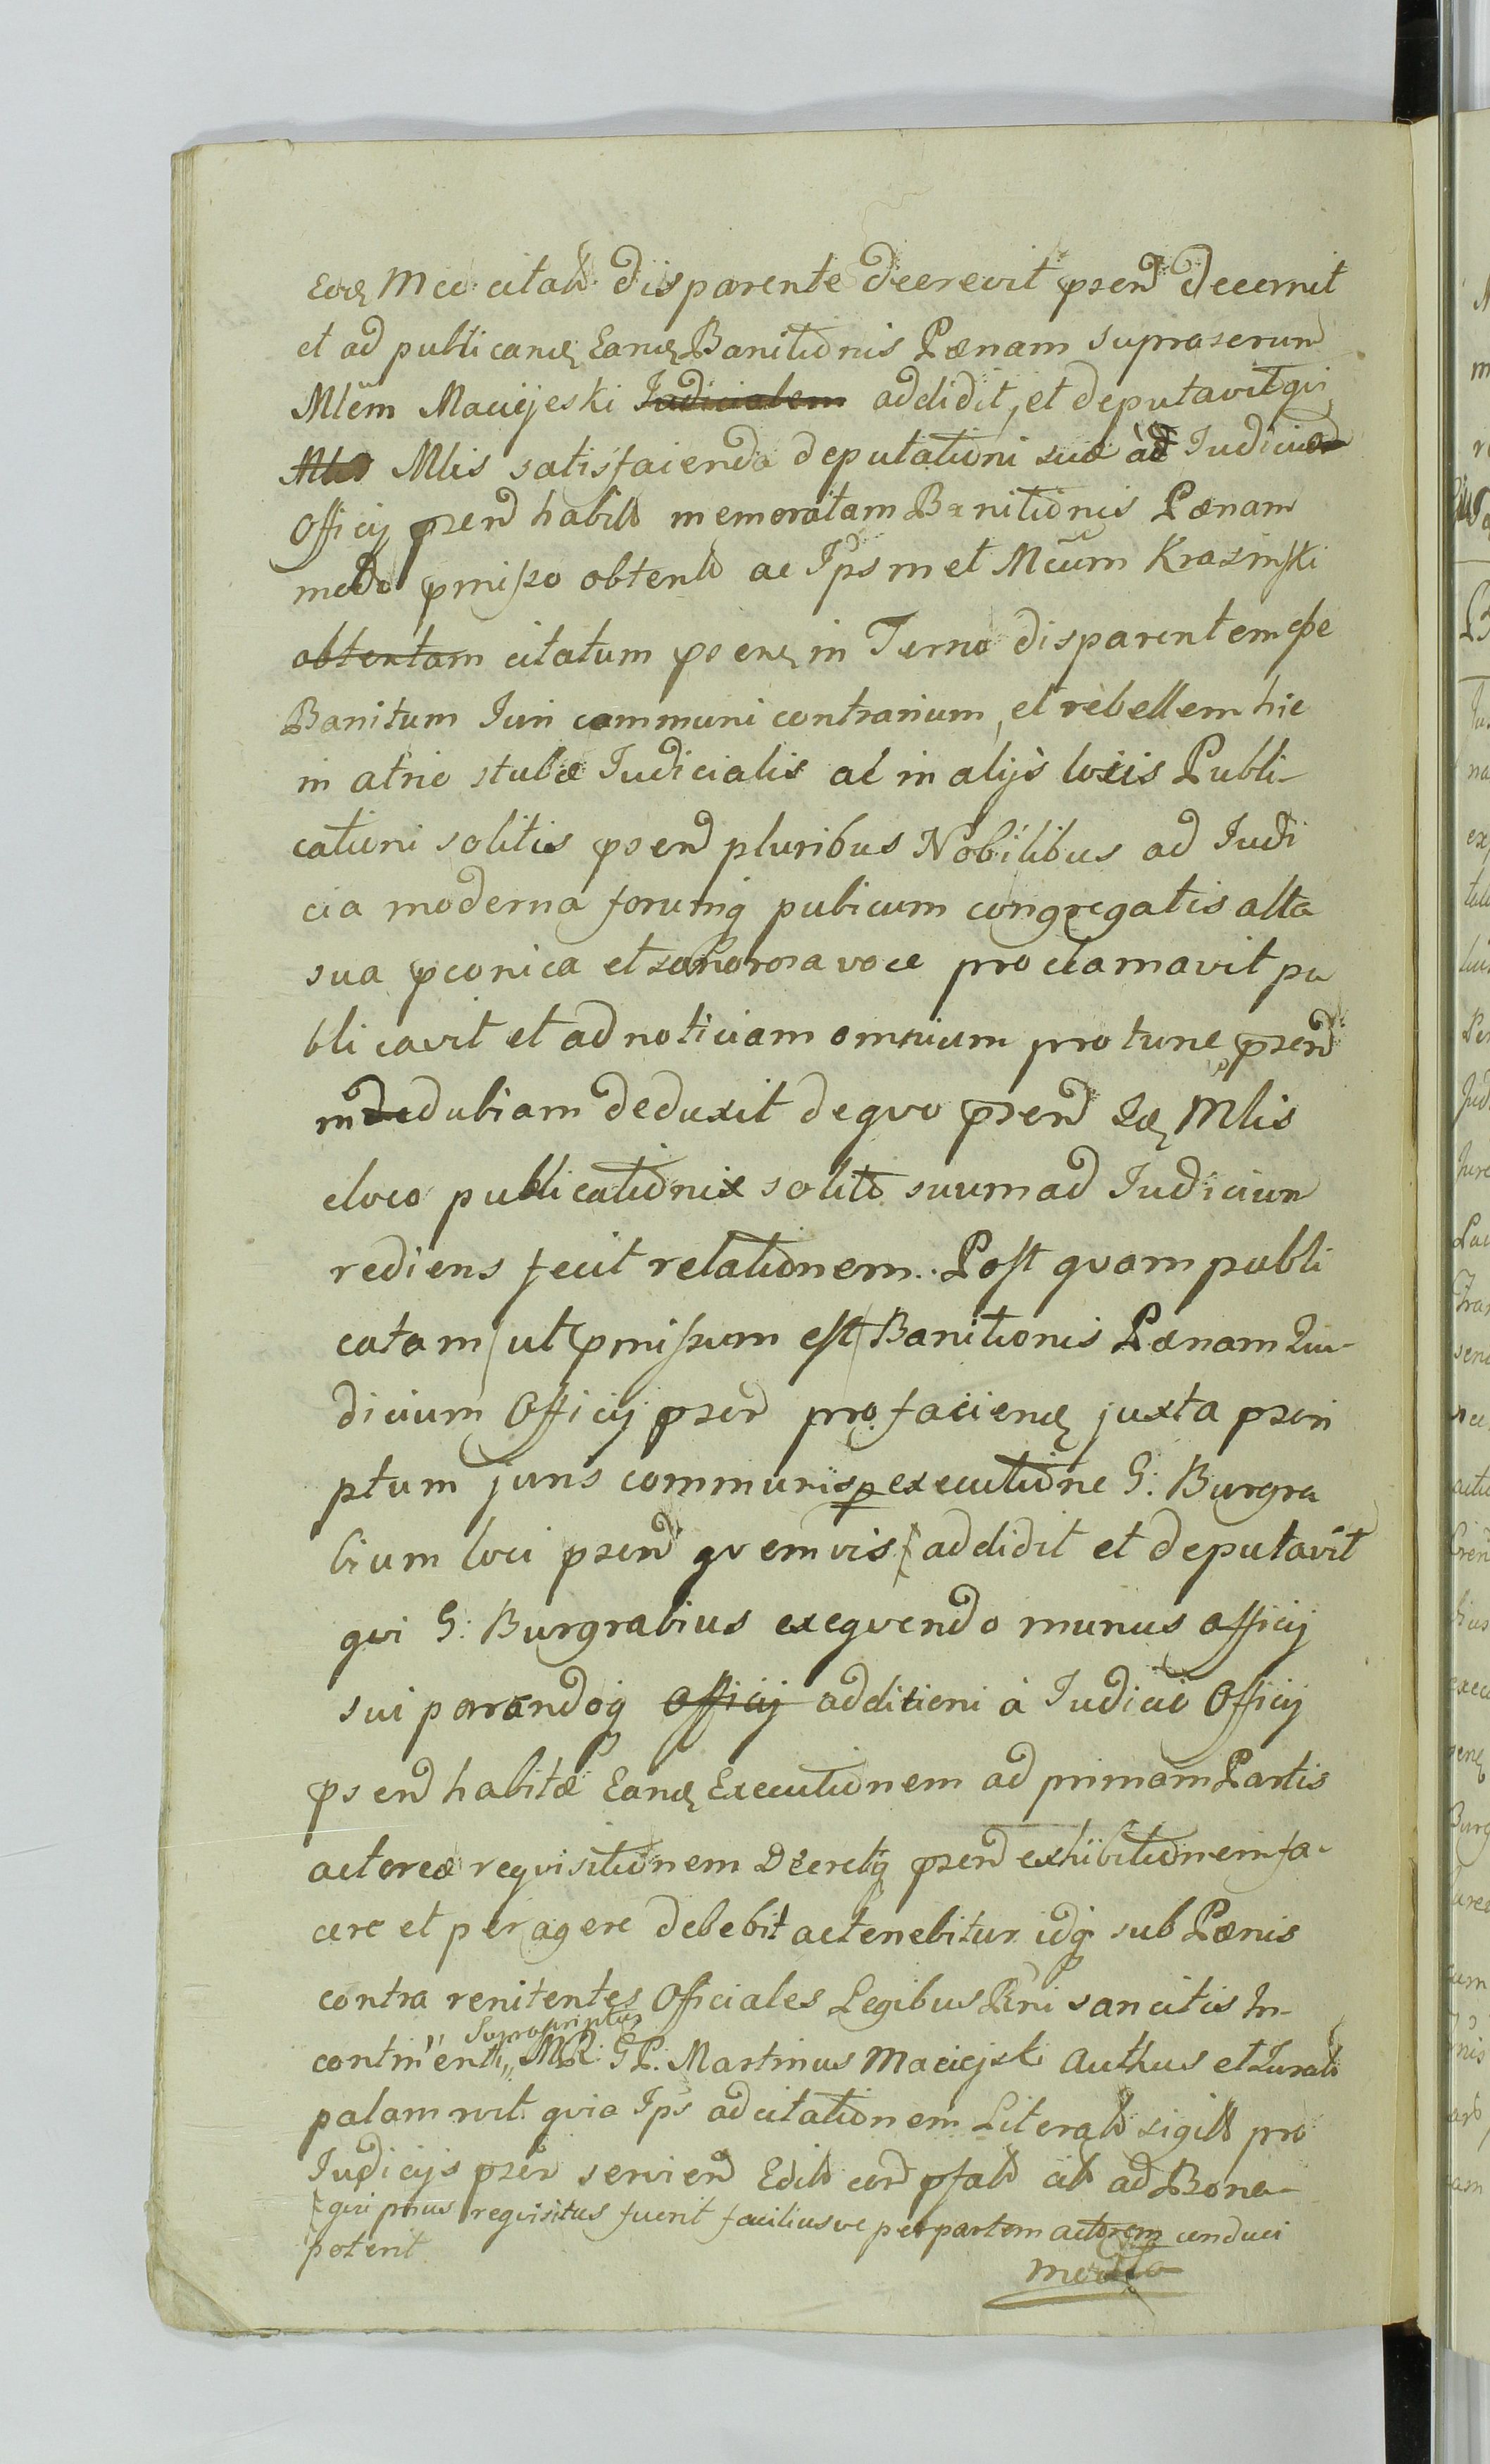 Mci citato disparente decrevit psend decernit
et ad publicand Eand Banitionis Pænam supraserund
Mlem Maciejeski Judicialem addidit, et deputavit qui
Mlis Mlis satisfaienda deputationi suæ ad Judicium
Officij psend habito memoratam Banitionis Pænam
modo pmisso obtento ac Ipsmet Mcum Krasinski
obtentam citatum in Termo disparentem
Banitum Juri communi contrarium, et rebellem hic
in atrio stubæ Judicialis ac in alijs locis Publi-
cationi solitis psend pluribus Nobilibus ad Judi
cia moderna forumq pubicum congregatis alta
sua pconica et sonorosa voce proclamavit pu
blicavit et ad noticiam omnium pro tunc psend
indedubiam deduxit de quo psend Mlis
eloco publicationis solito suum ad Judicium
rediens fecit relationem. Post quam publi
catam/ut pmissum est/Banitionis Pænam Iu-
dicium Officij psend pro faciend juxta pscri
ptum juris communis p executione G: Burgra
bium loci psend quemvis addidit et deputavit
qui G: Burgrabius exequendo munus officij
sui parandoq officij additioni à Judicio Officij
psend habitæ Eand Executionem ad primam Partis
actoreæ requisitionem Decretiq psend exhibitionem fa-
cere et peragere debebit ac tenebitur idq sub Pænis
contra renitentes Officiales Legibus Rni sancitis In-
continenti Suprascriptus MR. GR. Martinus Maciejski Authus et Jurato
palam rvit quia Ips ad citationem Literato sigillo pro
Judicijs psen serviend Edito cord pfato cito ad Bona
qui prius requisitus fuerit faciliusve per partem actoream conduci
poterit